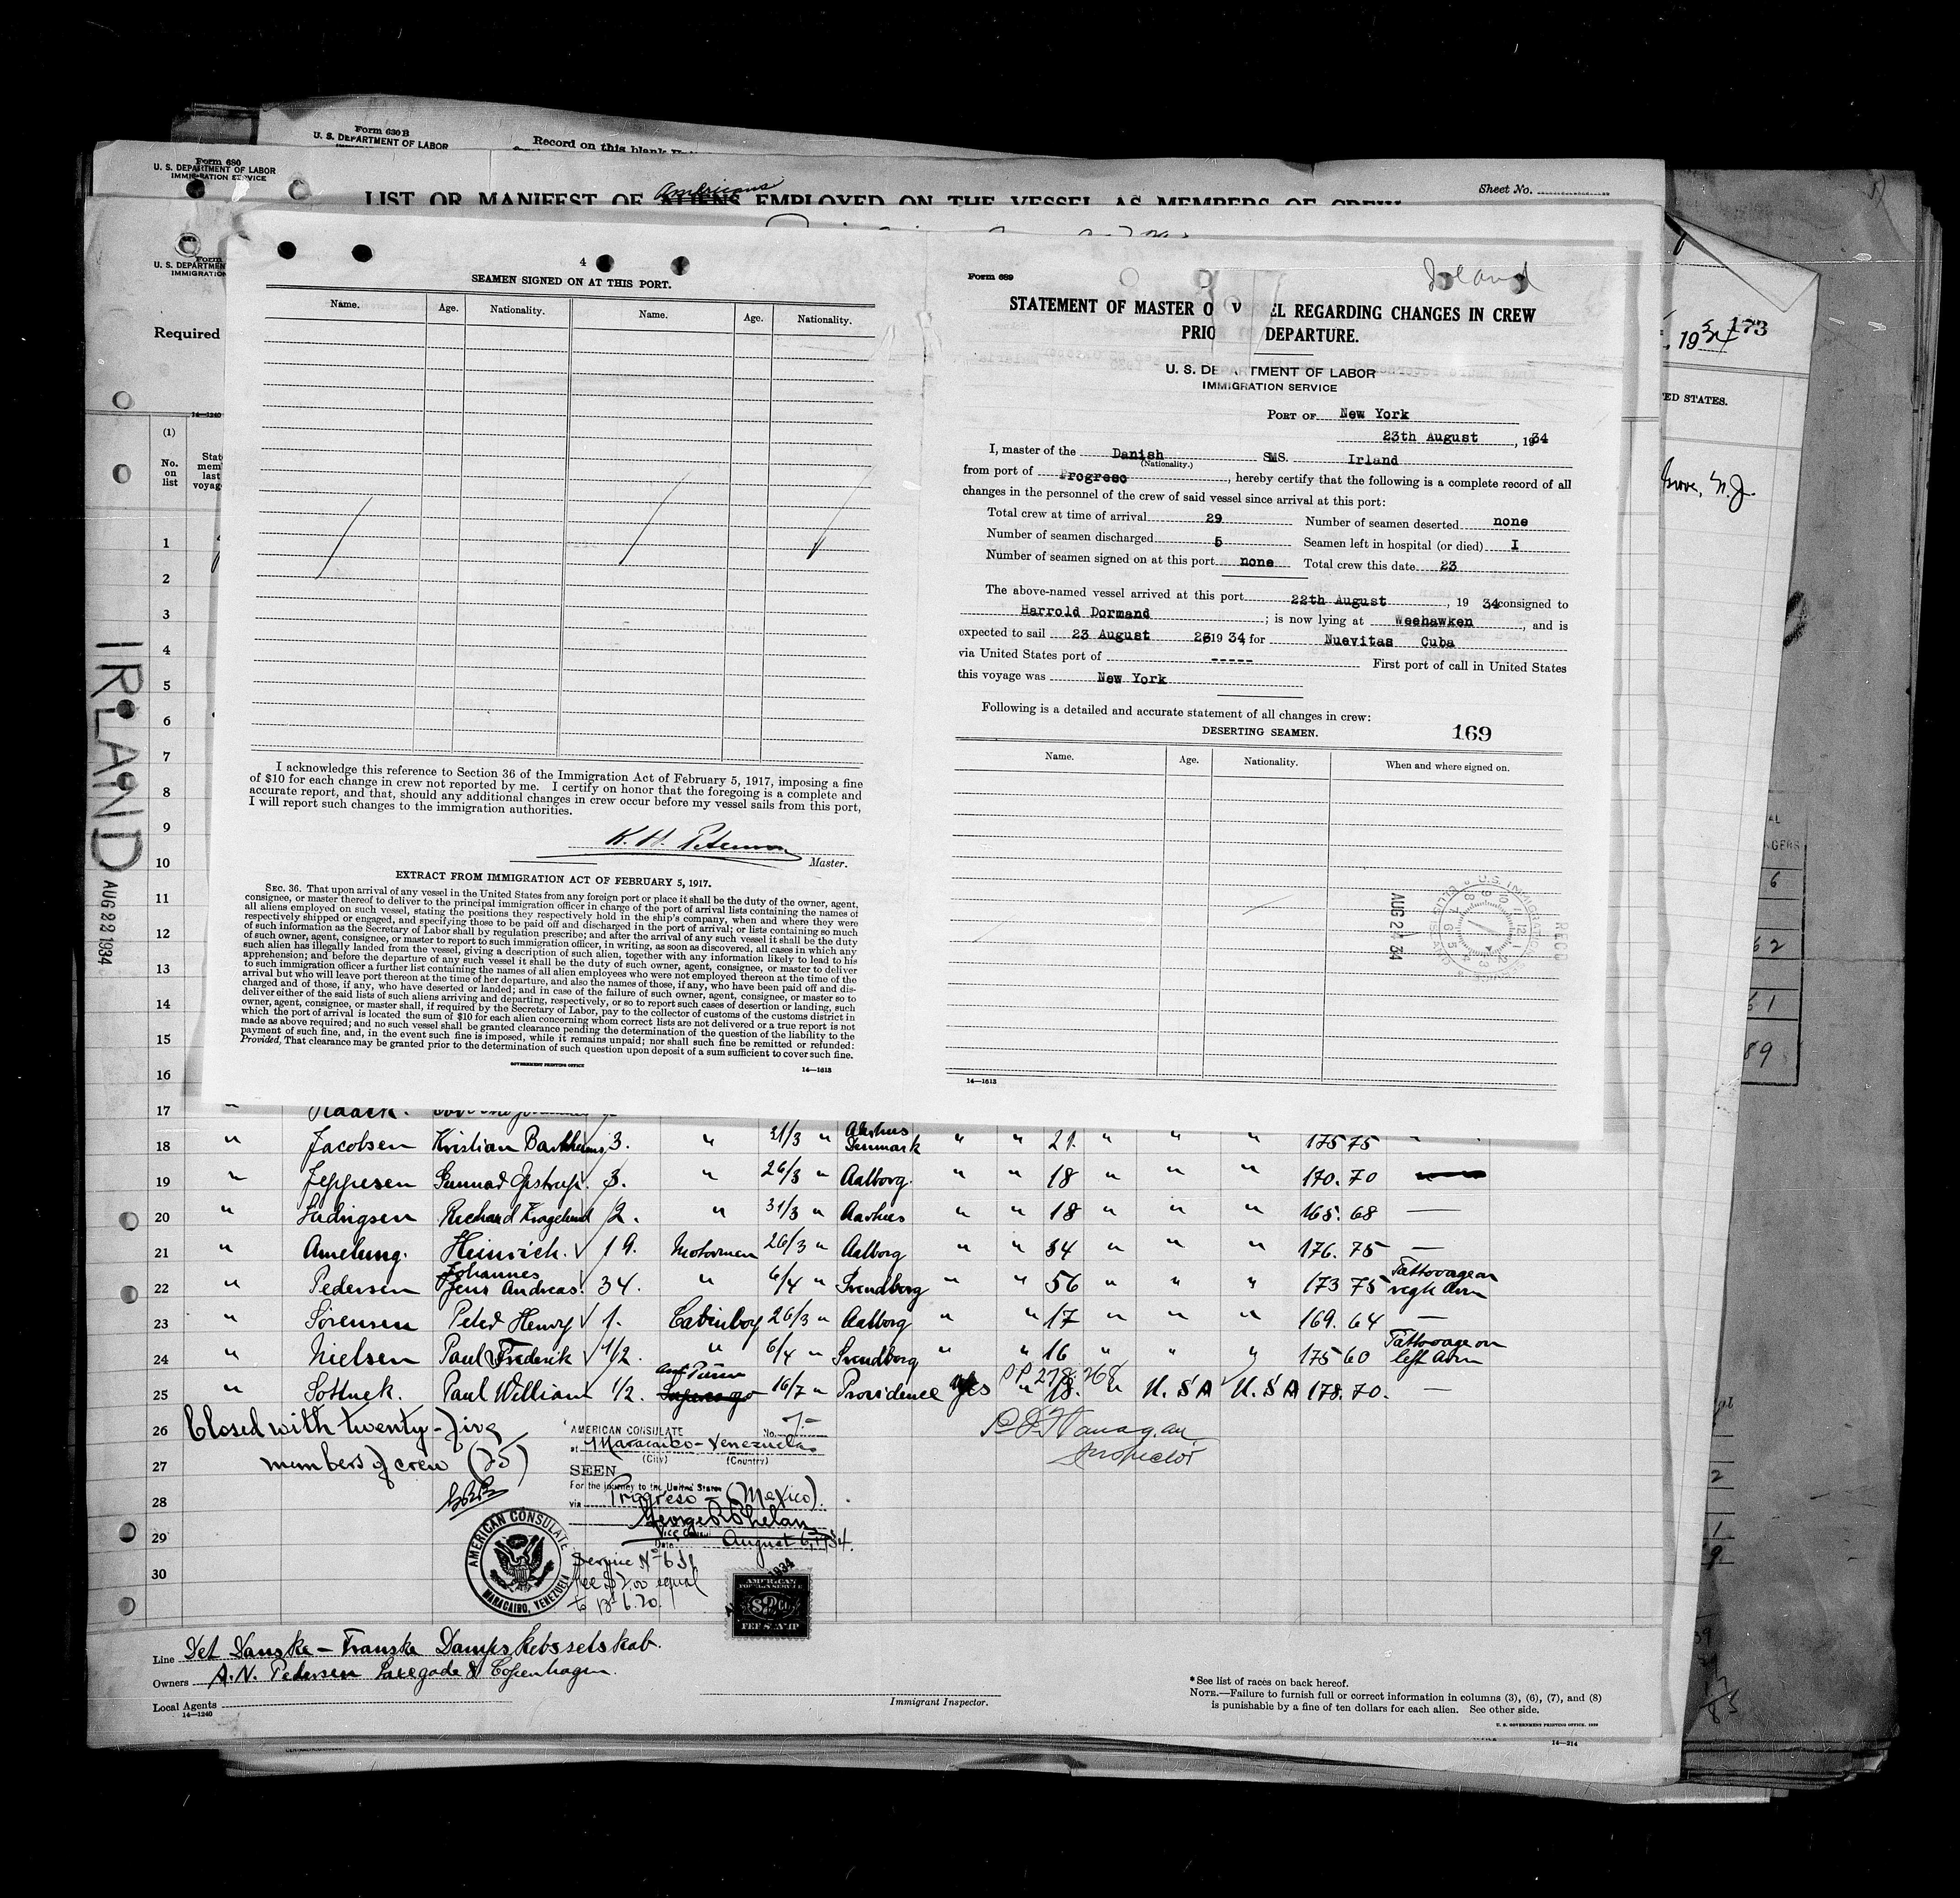 Form 630 B
U. S. DEPARTMENT OF LABOR
Record on this blank
Form 680
U. S. DEPARTMENT OF LABOR
IMMIGRATION SERVICE
Sheet No.
Americans
LIST OR MANIFEST OF ALIENS EMPLOYED ON THE VESSEL AS MEMBERS OF CREW
Form
U. S. DEPARTMEN
IMMIGRATION
Required
14—1240
(1)
No. on list
1
2
3
4
5
6
7
8
9
10
11
12
13
14
15
16
IRLAND
AUG 22 1934
4
SEAMEN SIGNED ON AT THIS PORT.
Name. Age. Nationality. Name. Age. Nationality.
I acknowledge this reference to Section 36 of the Immigration Act of February 5, 1917, imposing a fine
of $10 for each change in crew not reported by me. I certify on honor that the foregoing is a complete and
accurate report, and that, should any additional changes in crew occur before my vessel sails from this port,
I will report such changes to the immigration authorities.
K. H. Petersen
Master.
EXTRACT FROM IMMIGRATION ACT OF FEBRUARY 5, 1917.
SEC. 36. That upon arrival of any vessel in the United States from any foreign port or place it shall be the duty of the owner, agent,
consignee, or master thereof to deliver to the principal immigration officer in charge of the port of arrival lists containing the names of
all aliens employed on such vessel, stating the positions they respectively hold in the ship's company, when and where they were
respectively shipped or engaged, and specifying those to be paid off and discharged in the port of arrival; or lists containing so much
of such information as the Secretary of Labor shall by regulation prescribe; and after the arrival of any such vessel it shall be the duty
of such owner, agent, consignee, or master to report to such immigration officer, in writing, as soon as discovered, all cases in which any
such alien has illegally landed from the vessel, giving a description of such alien, together with any information likely to lead to his
apprehension; and before the departure of any such vessel it shall be the duty of such owner, agent, consignee, or master to deliver
to such immigration officer a further list containing the names of all alien employees who were not employed thereon at the time of the
arrival but who will leave port thereon at the time of her departure, and also the names of those, if any, who have been paid off and dis-
charged and of those, if any, who have deserted or landed; and in case of the failure of such owner, agent, consignee, or master so to
deliver either of the said lists of such aliens arriving and departing, respectively, or so to report such cases of desertion or landing, such
owner, agent, consignee, or master shall, if required by the Secretary of Labor, pay to the collector of customs of the customs district in
which the port of arrival is located the sum of $10 for each alien concerning whom correct lists are not delivered or a true report is not
made as above required; and no such vessel shall be granted clearance pending the determination of the question of the liability to the
payment of such fine, and, in the event such fine is imposed, while it remains unpaid; nor shall such fine be remitted or refunded:
Provided, That clearance may be granted prior to the determination of such question upon deposit of a sum sufficient to cover such fine.
GOVERNMENT PRINTING OFFICE
14—1613
Form 689
Irland
STATEMENT OF MASTER O V EL REGARDING CHANGES IN CREW
PRIO DEPARTURE.
U. S. DEPARTMENT OF LABOR
IMMIGRATION SERVICE
PORT OF New York
23th August, 1934
I, master of the Danish SMS. Irland
(Nationality.)
from port of Progreso, hereby certify that the following is a complete record of all
changes in the personnel of the crew of said vessel since arrival at this port:
Total crew at time of arrival 29 Number of seamen deserted none
Number of seamen discharged 5 Seamen left in hospital (or died) I
Number of seamen signed on at this port none Total crew this date 23
The above-named vessel arrived at this port 22th August, 19 34 consigned to
Harrold Dormand; is now lying at Weehawken, and is
expected to sail 23 August 19 34, for Nuevitas Cuba
via United States port of ----- First port of call in United States
this voyage was New York
Following is a detailed and accurate statement of all changes in crew:
DESERTING SEAMEN. 169
Name. Age. Nationality. When and where signed on.
AUG 24 34
U.S. IMMIGRATION
RECD
14—1613
1934 173
ED STATES.
Grove, N.J.
17 "
18 " Jacobsen Kristian 3. " 21/3 " Aarhus Denmark " " 21 " " " 175 75
19 " Jeppesen Gunnar 3. " 26/3 " Aalborg. " " 18 " " " 170. 70
20 " Ludvigsen Richard 2. " 31/3 " Aarhus " " 18 " " " 165. 68 —
21 " Amelung. Heinrich. 19. Motorman 26/3 " Aalborg " " 34 " " " 176. 75 —
22 " Pedersen Johannes Jens Andreas. 34. " 6/4 " Svendborg " " 56 " " " 173 75 Tattovage on regh Arm
23 " Sörensen Peter Henry 1. Cabinboy 26/3 " Aalborg " " 17 " " " 169. 64 —
24 " Nielsen Paul Frederik 1/2. " 6/4 " Svendborg " " 16 " " " 175 60 Tattovage on left Arm
25 " Paul William 1/2. Supercargo 16/7 " Providence Yes " 18. " U.S A U.S A 178. 70. —
PP 278268
26 Closed with twenty-five
27 members of crew (25)
28
29
30
Inspector
AMERICAN CONSULATE No. 7.-
at Maracaibo-Venezuela
(City) (Country)
SEEN
For the journey to the United States
via Progreso - (Mexico).
George R Phelan
Vice Consul
Date August 6, 1934.
Service No 631
fee $2.00 equal
to Bs 6.20.
AMERICAN CONSULATE
MARACAIBO, VENEZUELA
AMERICAN
FOREIGN SERVICE
$2
FEE STAMP
Line Det Danske - Franske Dampskibsselskab.
Owners A.N. Petersen Copenhagen.
Local Agents
14—1240
Immigrant Inspector.
* See list of races on back hereof.
NOTE.—Failure to furnish full or correct information in columns (3), (6), (7), and (8)
is punishable by a fine of ten dollars for each alien. See other side.
U. S. GOVERNMENT PRINTING OFFICE
14—214